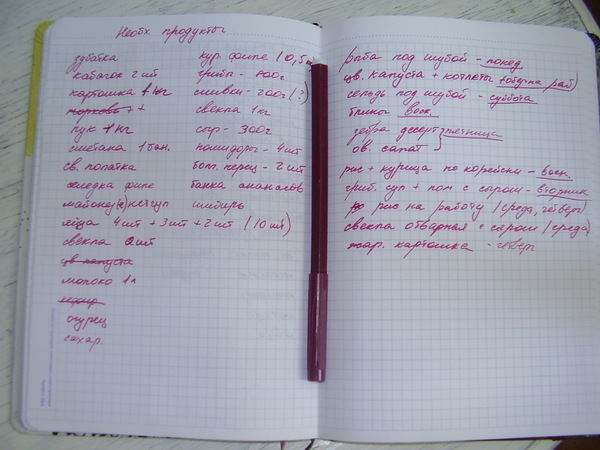 Необх. продукты
зубатка
кабачок 2 шт
картошка 1 кг
морковь ++
лук 1 кг
сметана 1 бан.
св. лопатка
селедка филе
майонез, кетчуп
яйца 4 шт + 3 шт + 2 шт (10 шт)
свекла 2 шт
цв капуста
молоко 1 л
огурец
сахар.
кур. филе (0,5
грибы - 400г
сливки - 200г (?)
свекла 1 кг
сыр - 300г
помидоры - 4 шт
болг. перец - 2 шт
банка ананасов
имбирь
рыба под шубой - понед.
цв. капуста + котлеты
сельдь под шубой - суббота
блины воск.
зебра десерт пятница
ов. салат
рис + курица по корейски - воск.
гриб. суп + пом с сыром - вторник
рис на работу (среда, четверг)
свекла отварная с сыром (среда)
жар. картошка - четверг